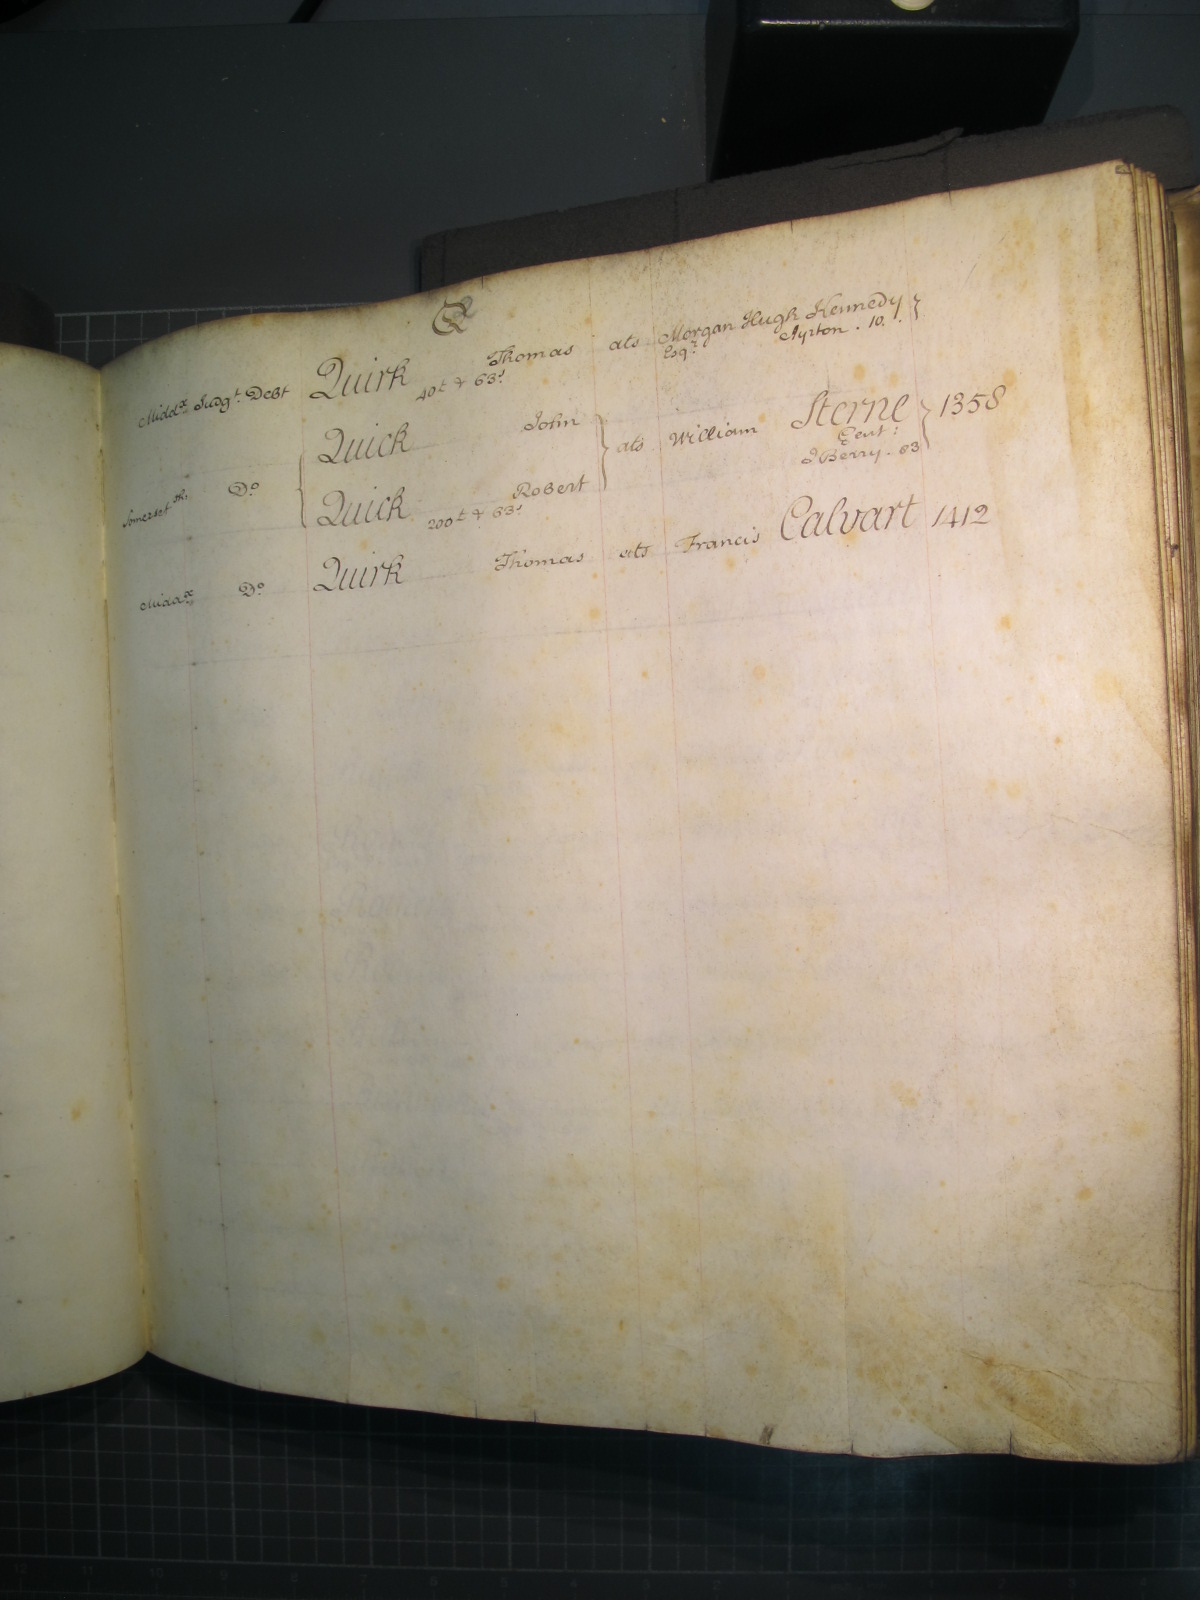 Q
Midd.x Judg.t Debt Quirk Thomas ats Morgan Hugh Kennedy
40£ & 63s Esq.r Ayrton . 10 .
Quick John
Somerset sh. D.o ats William Sterne 1358
Gent :
J Berry . 83
Quick Robert
200£ & 63s
Midd.x D.o Quirk Thomas ats Francis Calvart 1412